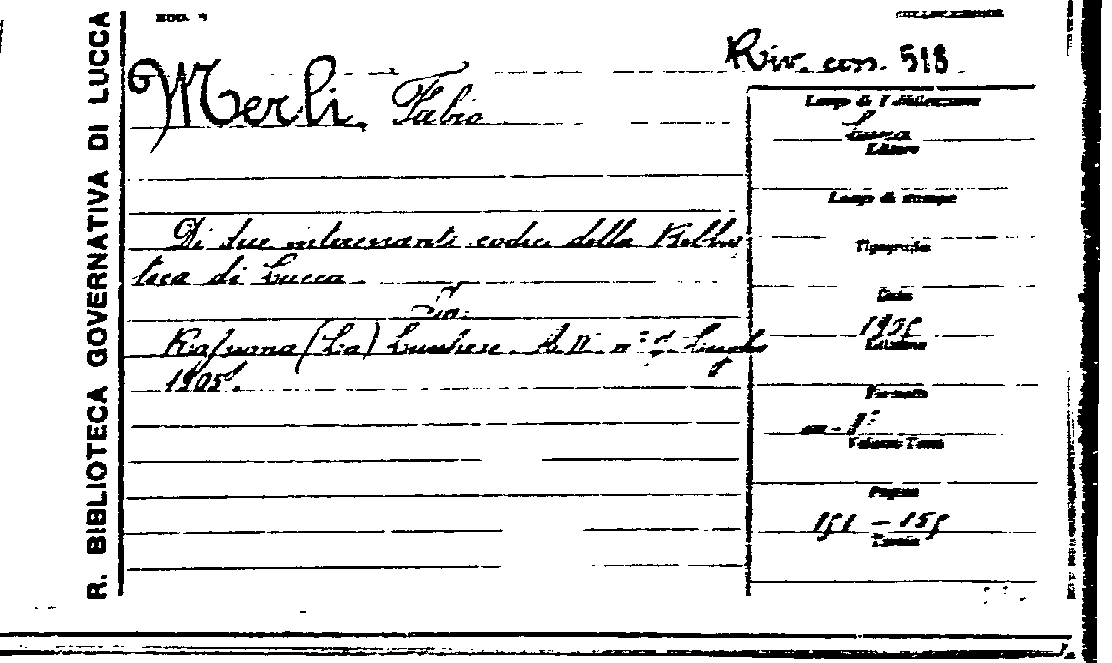 R. BIBLIOTECA GOVERNATIVA DI LUCCA
MOD.
Riv. con. 518
Merli, Fabio
Di due interessanti codici della Biblio
teca di Lucca.
In:
(La) Lucchese. A. II. n° Luglio
1905.
Luogo di Pubblicazione
Lucca
Editore
Luogo di stampa
Tipografia
Data
1905
Edizione
Formato
in-8°
Volume Tomo
Pagine
Tavole